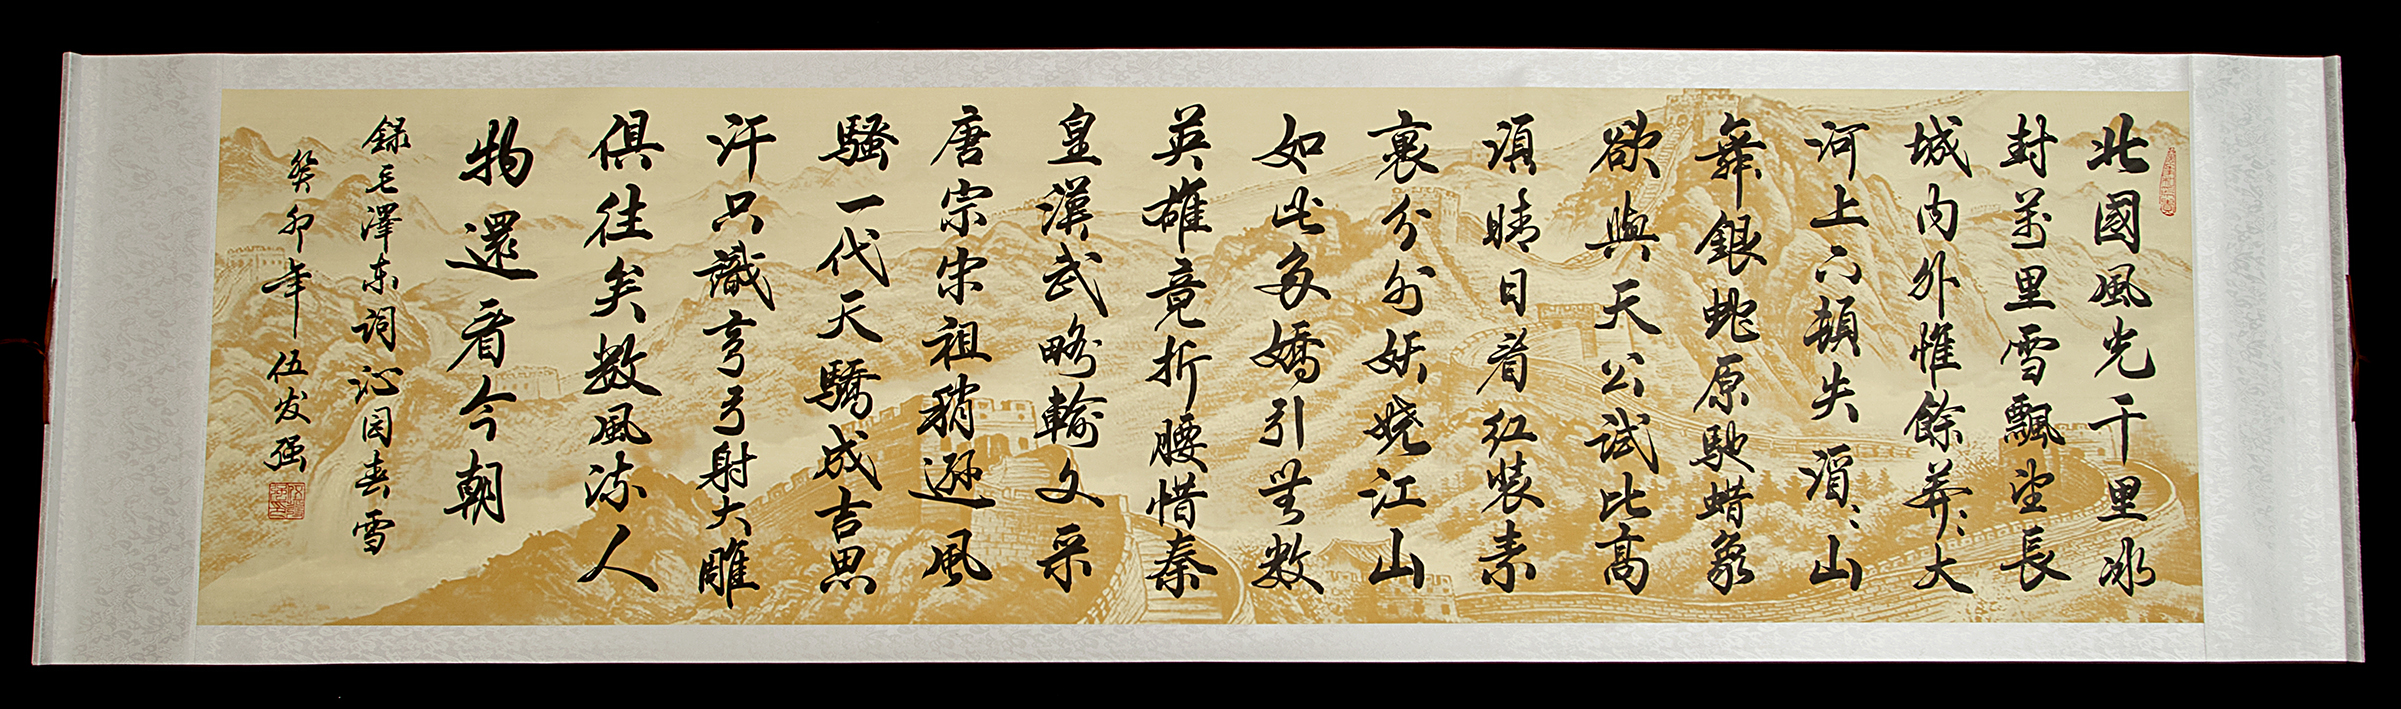 北國風光千里冰
封萬里雪飄望長
城内外惟餘莽〻大
河上下頓失滔〻山
舞銀蛇原馳蜡象
欲與天公試比高
須晴日看红裝素
裹分外妖娆江山
如此多嬌引無数
英雄竟折腰惜秦
皇漢武略輸文采
唐宗宋祖稍遜風
騷一代天驕成吉思
汗只識弯弓射大雕
俱往矣数風流人
物還看今朝
録毛澤东词沁园春雪
癸卯年伍发强